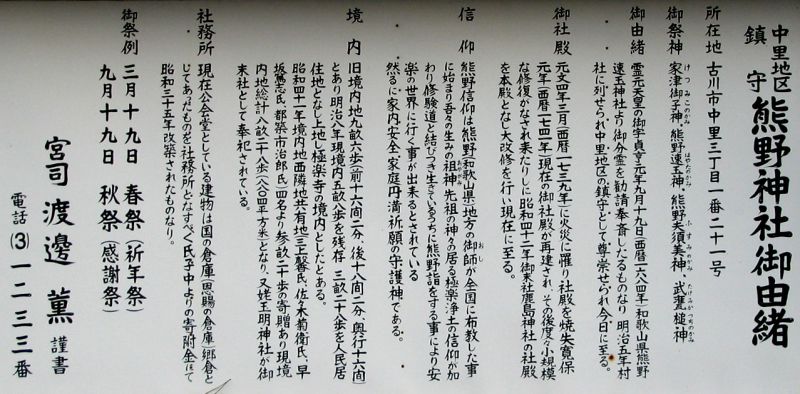 中里地区
鎮守
熊野神社御由緒
所在地 古川市中里三丁目一番二十一号
御祭神 家津御子神、熊野速玉神、熊野夫須美神、武甕槌神
けつみこのかみ はやたまのかみ ふすみのかみ たけみかづちのかみ
御由緒 霊元天皇の御宇貞享元年九月十九日(西暦一六八四年)和歌山県熊野
速玉神社より御分霊を勧請奉斎したるものなり 明治五年村
社に列せられ中里地区の鎮守として尊崇せられ今日に至る。
御社殿 元文四年三月(西暦一七三九年)に火災に罹り社殿を焼失寛保
元年(西暦一七四一年)現在の御社殿が再建され、その後度々小規模
な修復がなされ来たりしに昭和四十二年御末社鹿島神社の社殿
を本殿となし大改修を行い現在に至る。
信仰 熊野信仰は熊野(和歌山県)地方の御師が全国に布教した事
おし
に始まり吾々の生みの祖神先祖の神々の居る極楽浄土の信仰が加
わり修験道と結びつき生きているうちに熊野詣をする事により安
楽の世界に行く事が出来るとされている
然るに家内安全家庭円満祈願の守護神である。
境内 旧境内地九畝六歩(前十六間二分、後十八間二分、奥行十六間)
とあり明治八年現境内五畝八歩を残存 三畝二十八歩を人民居
住地となし上地し極楽寺の境内としたとある。
昭和四十一年境内地西隣地共有地三上馨氏、佐々木菊衛氏、早
坂篤志氏、都築市治郎氏(四名より参畝二十歩の寄贈あり現境
内地総計八畝二十八歩(八〇四平方米)となり、又姥玉明神社が御
末社として奉祀されている。
社務所 現在公会堂としている建物は国の倉庫恩賜の倉庫郷倉と
じてあったものを社務所となすべく氏子中よりの寄附金にて
昭和三十五年改築されたものなり。
御祭例 三月十九日 春祭(祈年祭)
九月十九日 秋祭(感謝祭)
宮司 渡邊 薫 謹書
電話(3)一二三三番